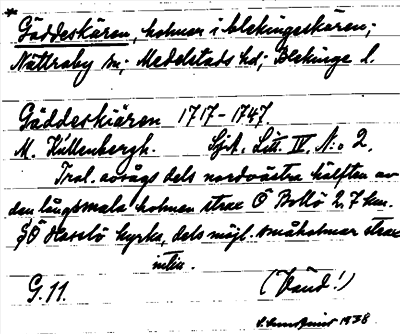 * Gäddeskären, holmar i blekingeskären;
Nättraby sn; Medelstads hd; Blekinge l.
Gäddeskiären 1717-1747.
M. Kullenbergh. Sjök. Litt. IV, N:o 2.
Trol. avsågs dels nordvästra hälften av
den långsmala holmen strax Ö Bollö 2,7 km.
SÖ Hasslö kyrka, dels möjl. småholmar strax
intill.
G. 11. (Vänd!)
1938